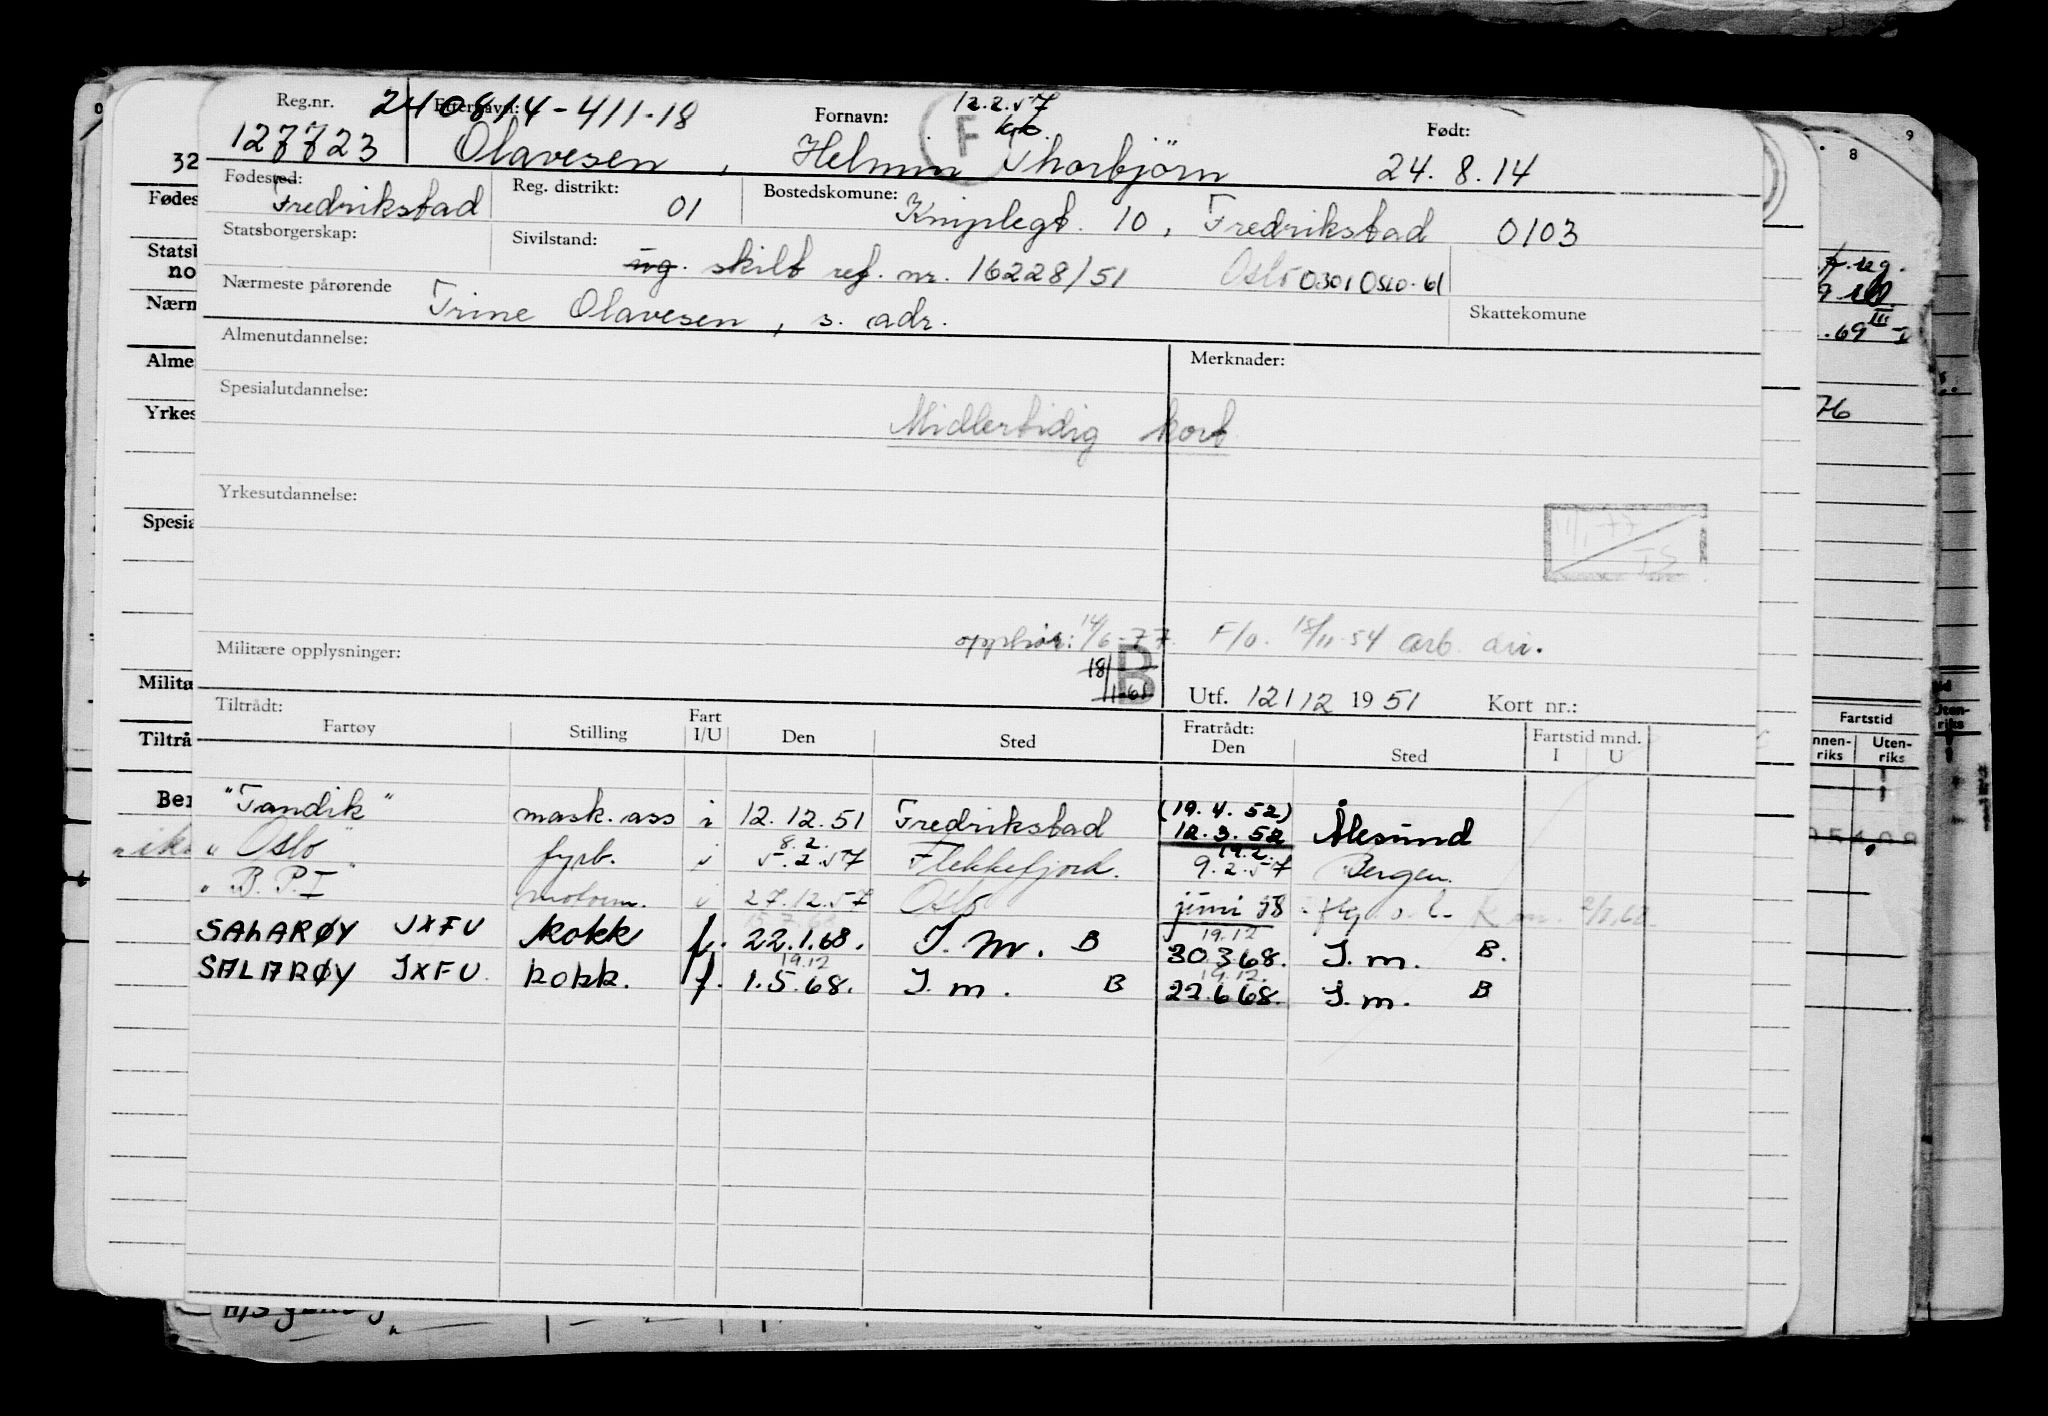 Reg.nr. 240814-411-18 Etternavn: Fornavn: 12.2.57 Født:
127723 Olavesen, Helmin Thorbjörn F 24.8.14
Fødested: Fredrikstad Reg. distrikt: 01 Bostedskomune: Kniplegt. 10, Fredrikstad 0103
Statsborgerskap: Sivilstand: ug. skilt ref. nr. 16228/51 Oslo 0301 Oslo-61
Nærmeste pårørende Trine Olavesen, s. adr. Skattekomune
Almenutdannelse: Merknader:
Spesialutdannelse:
Midlertidig kort
Yrkesutdannelse:
opphør: 14/6-77. F/o. 18/11-54 arb. div.
Militære opplysninger: B
18/1-61
Utf. 12/12 1951 Kort nr.:
Tiltrådt: Fratrådt:
Fartøy Stilling Fart I/U Den Sted Den Sted Fartstid mnd. I U
"Tandik" mask.ass i 12.12.51 Fredrikstad (19.4.52) 12.3.52 Ålesund
"Oslo" fyrb. i 8.2. 5.2.57 Flekkefjord. 19.2. 9.2.57 Bergen.
"B.P.I" motorm. i 27.12.57 Oslo juni 58
SALARØY JXFU kokk f. 22.1.68. I.m. B 19.12 30.3.68. I.m. B.
SALARØY JXFU. kokk. f. 19.12 1.5.68. I.m. B 19.12. 22.6.68. I.m. B
32
Fødes
Statsb
no
Nærm
Alme
Yrkes
Spesia
Milita
Tiltrå
Ber
8
9
76
Fartstid
nnen-riks Uten-riks